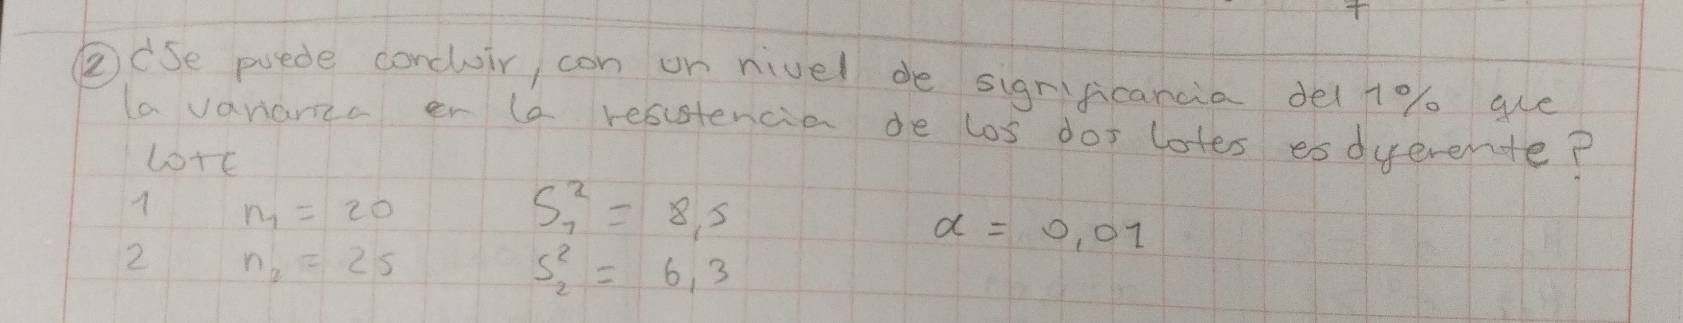 ② ¿Se puede concluir, con un nivel de significancia del 1% que
la varianza en la resistencia de los dos lotes es diferente?
Lote
1 n₁ = 20 S₁² = 8,5 α = 0,01
2 n₂ = 25 S₂² = 6,3